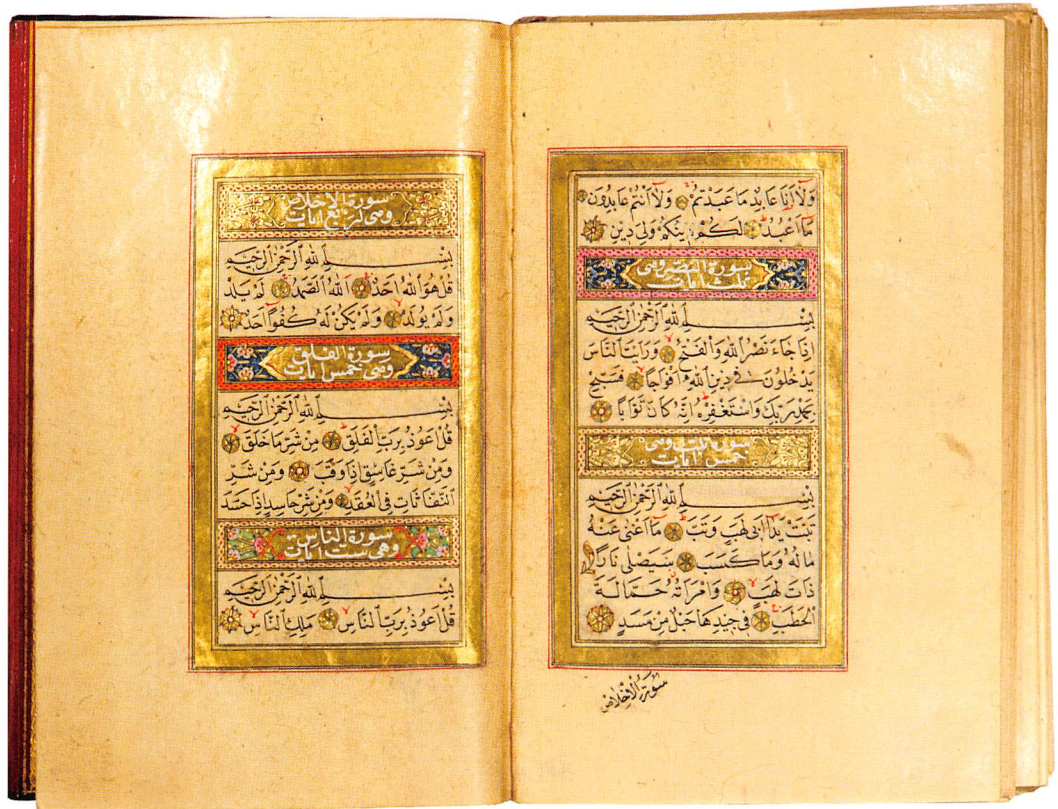 وَلَا أَنَا عَابِدٌ مَا عَبَدْتُمْ وَلَا أَنْتُمْ عَابِدُونَ
مَا أَعْبُدُ لَكُمْ دِينُكُمْ وَلِيَ دِينِ
سورة النصر وهى
ثلث ايات
بِسْمِ اللهِ الرَّحْمٰنِ الرَّحِيمِ
اِذَا جَاءَ نَصْرُ اللهِ وَالْفَتْحُ وَرَاَيْتَ النَّاسَ
يَدْخُلُونَ فِي دِينِ اللهِ اَفْوَاجًا فَسَبِّحْ
بِحَمْدِ رَبِّكَ وَاسْتَغْفِرْهُ اِنَّهُ كَانَ تَوَّابًا
سورة تبت وهى
خمس ايات
بِسْمِ اللهِ الرَّحْمٰنِ الرَّحِيمِ
تَبَّتْ يَدَا اَبِي لَهَبٍ وَتَبَّ مَا اَغْنٰى عَنْهُ
مَالُهُ وَمَا كَسَبَ سَيَصْلٰى نَارًا
ذَاتَ لَهَبٍ وَامْرَاَتُهُ حَمَّالَةَ
الْحَطَبِ فِي جِيدِهَا حَبْلٌ مِنْ مَسَدٍ
سورة الاخلاص
سورة الاخلاص
وهى اربع ايات
بِسْمِ اللهِ الرَّحْمٰنِ الرَّحِيمِ
قُلْ هُوَ اللهُ اَحَدٌ اَللهُ الصَّمَدُ لَمْ يَلِدْ
وَلَمْ يُولَدْ وَلَمْ يَكُنْ لَهُ كُفُوًا اَحَدٌ
سورة الفلق
وهى خمس ايات
بِسْمِ اللهِ الرَّحْمٰنِ الرَّحِيمِ
قُلْ اَعُوذُ بِرَبِّ الْفَلَقِ مِنْ شَرِّ مَا خَلَقَ
وَمِنْ شَرِّ غَاسِقٍ اِذَا وَقَبَ وَمِنْ شَرِّ
النَّفَّاثَاتِ فِي الْعُقَدِ وَمِنْ شَرِّ حَاسِدٍ اِذَا حَسَدَ
سورة الناس
وهى ست ايات
بِسْمِ اللهِ الرَّحْمٰنِ الرَّحِيمِ
قُلْ اَعُوذُ بِرَبِّ النَّاسِ مَلِكِ النَّاسِ